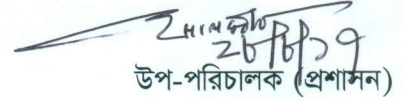 ২৮/৮/১৭
উপ-পরিচালক (প্রশাসন)